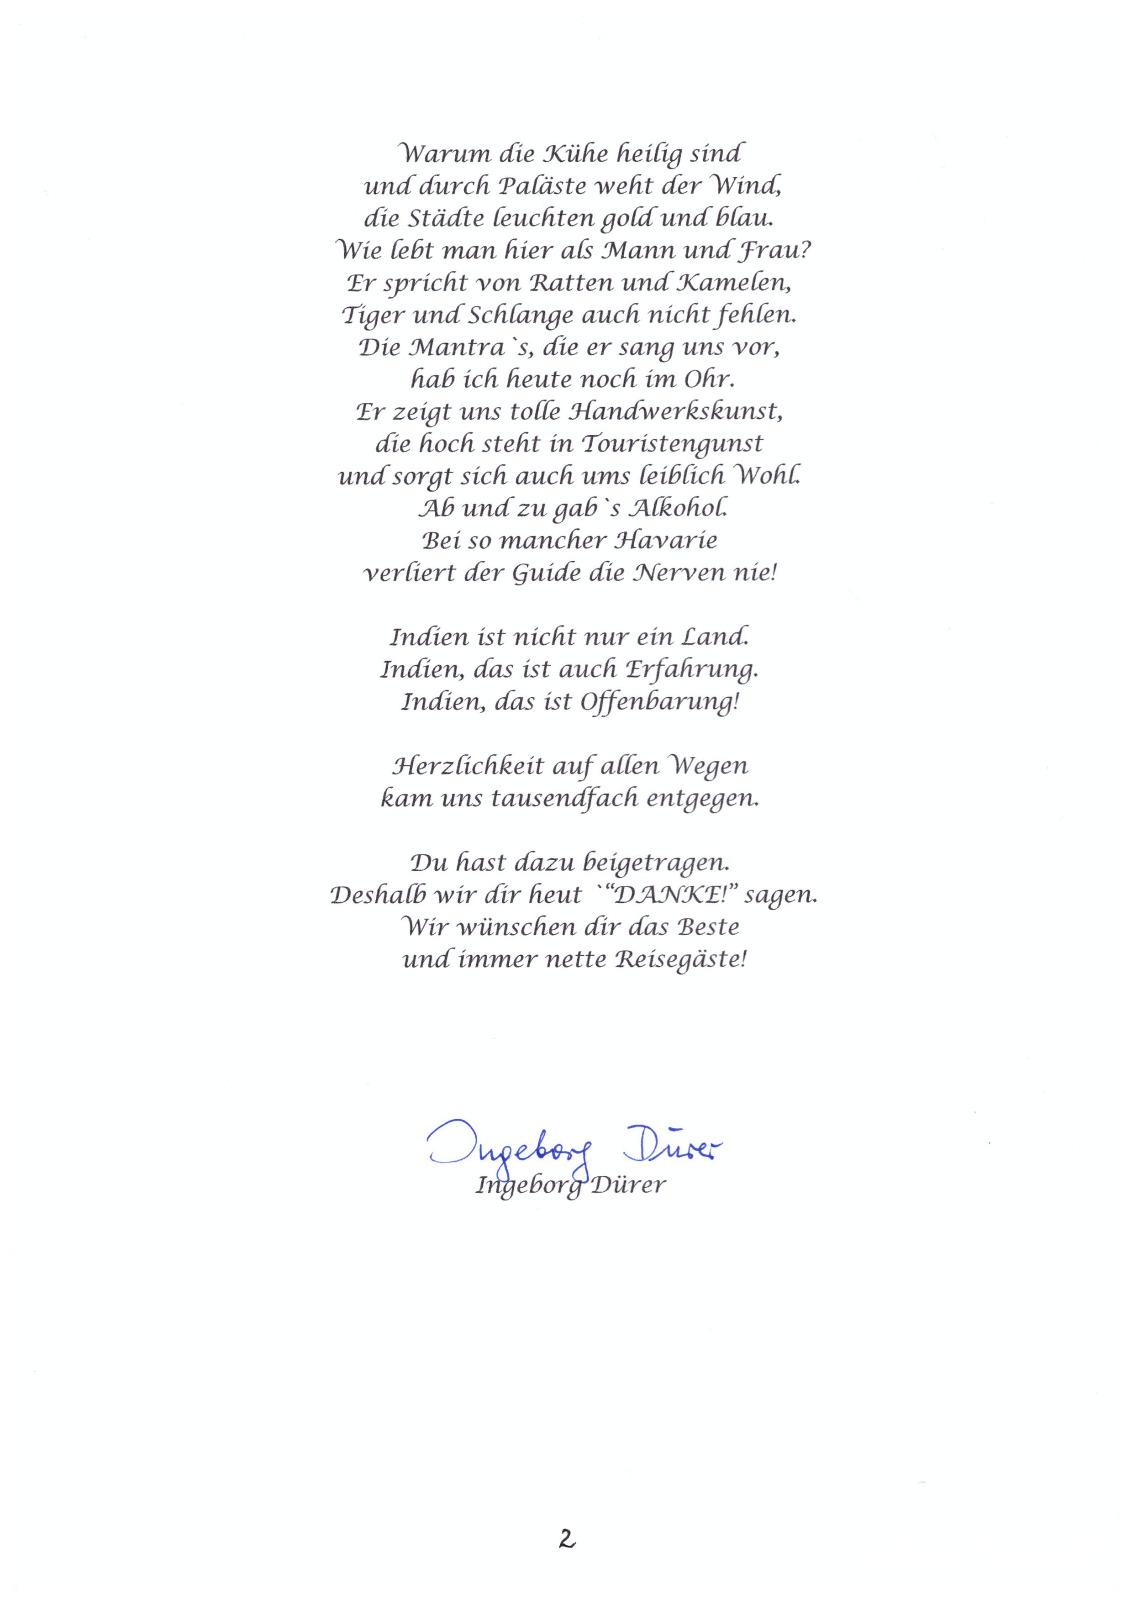 Warum die Kühe heilig sind
und durch Paläste weht der Wind,
die Städte leuchten gold und blau.
Wie lebt man hier als Mann und Frau?
Er spricht von Ratten und Kamelen,
Tiger und Schlange auch nicht fehlen.
Die Mantra`s, die er sang uns vor,
hab ich heute noch im Ohr.
Er zeigt uns tolle Handwerkskunst,
die hoch steht in Touristengunst
und sorgt sich auch ums leiblich Wohl.
Ab und zu gab`s Alkohol.
Bei so mancher Havarie
verliert der Guide die Nerven nie!

Indien ist nicht nur ein Land.
Indien, das ist auch Erfahrung.
Indien, das ist Offenbarung!

Herzlichkeit auf allen Wegen
kam uns tausendfach entgegen.

Du hast dazu beigetragen.
Deshalb wir dir heut `“DANKE!” sagen.
Wir wünschen dir das Beste
und immer nette Reisegäste!

Ingeborg Dürer
Ingeborg Dürer

2